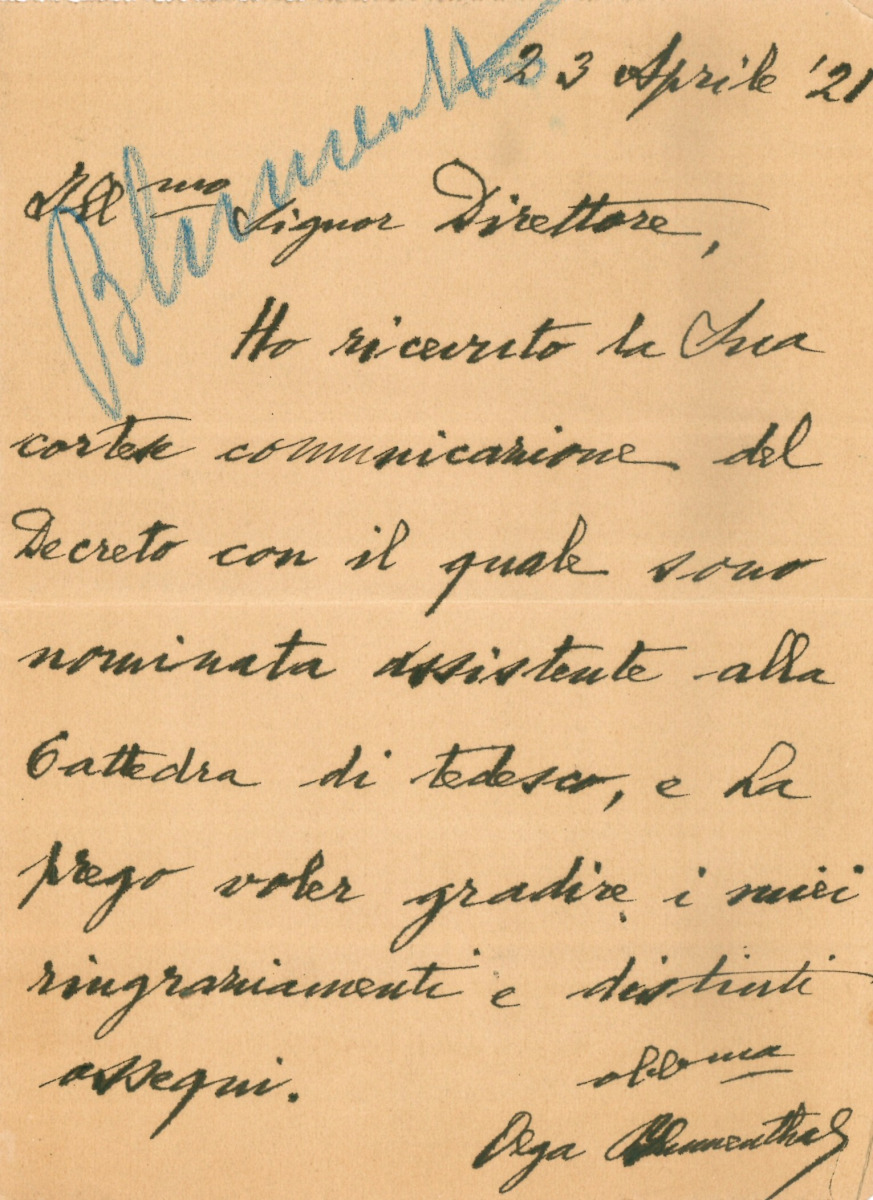 Blumenth
23 Aprile '21
Ill mo Signor Direttore,
Ho ricevuto la Sua
cortese comunicazione del
Decreto con il quale sono
nominata assistente alla
Cattedra di tedesco, e La
prego voler gradire i miei
ringraziamenti e distinti
ossequi.
obb ma
Olga Blumenthal